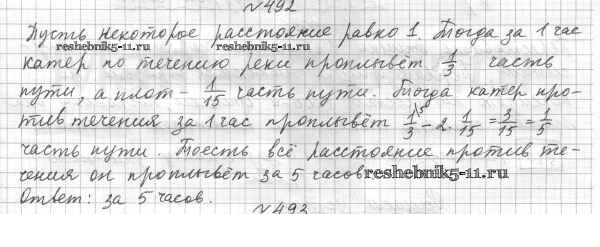 №492
Пусть некоторое расстояние равно 1. Тогда за 1 час
reshebnik5-11.ru reshebnik5-11.ru
катер по течению реки проплывёт 1/3 часть
пути, а плот – 1/15 часть пути. Тогда катер про-
тив течения за 1 час проплывёт 1/3\5 – 2 · 1/15 = 3/15 = 1/5
часть пути. Тоесть всё расстояние против те-
чения он проплывёт за 5 часов reshebnik5-11.ru
Ответ: за 5 часов.
№493